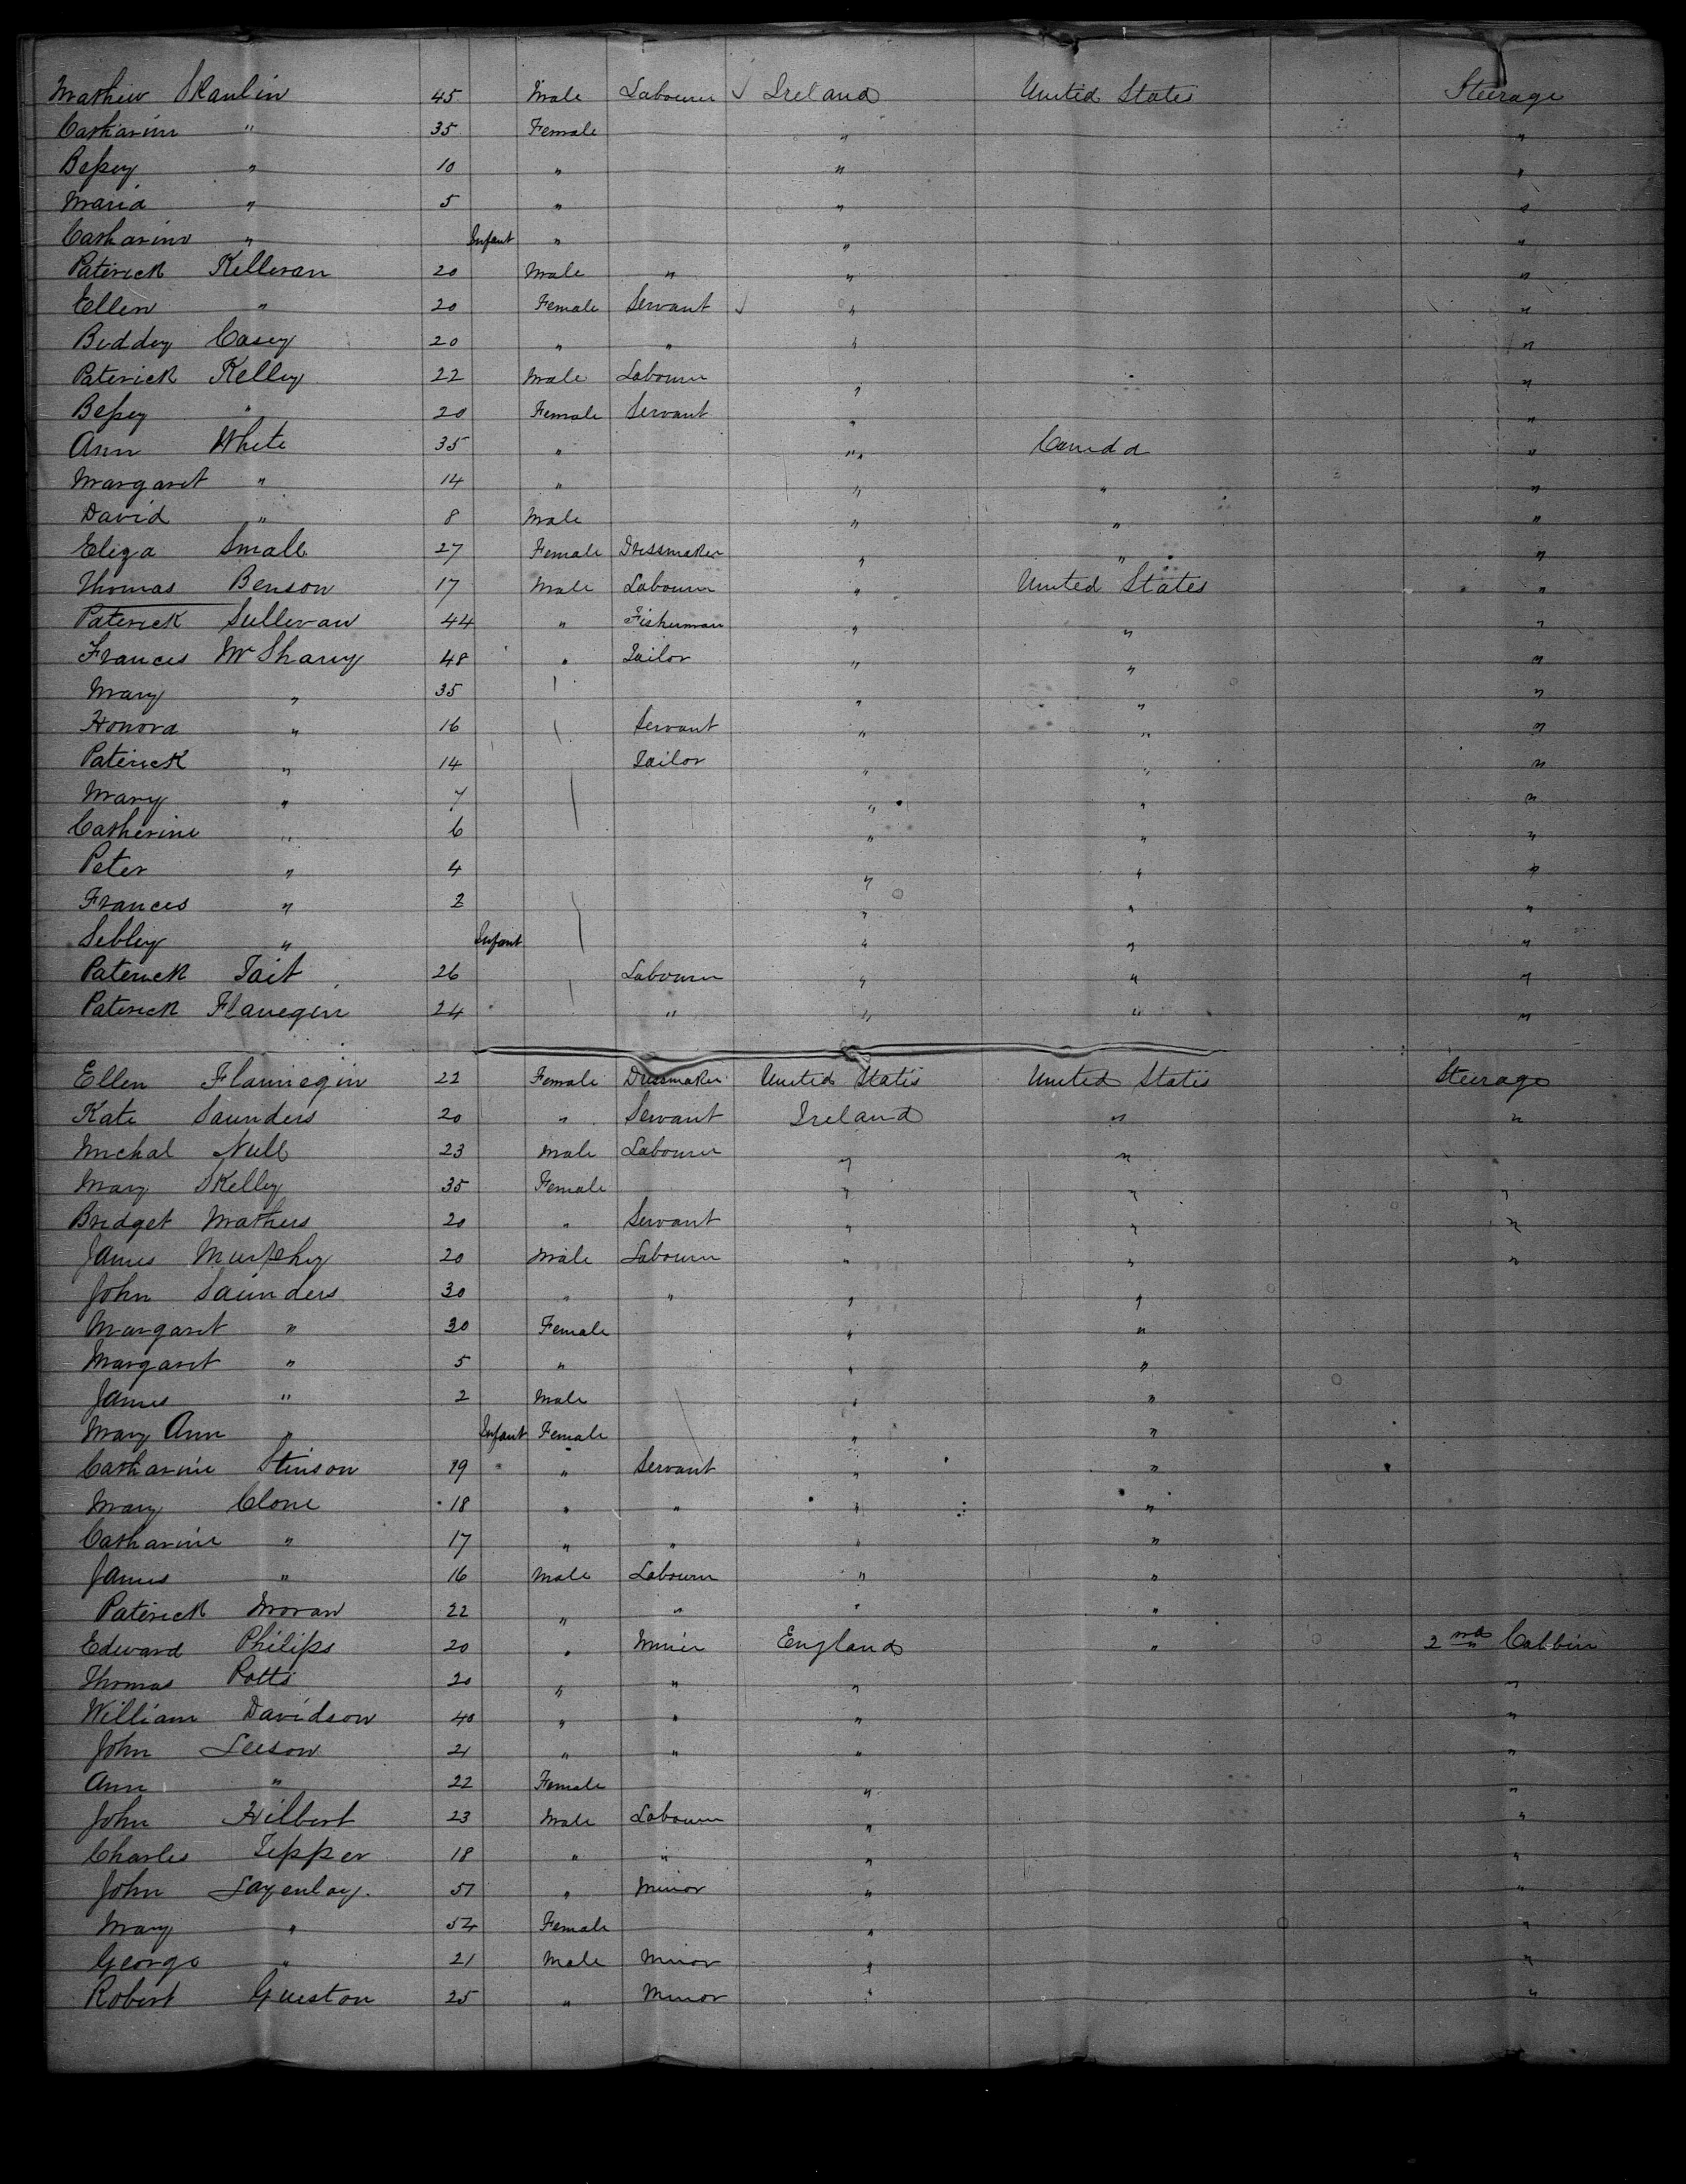 Mathew Skanlin 45 Male Labourer Ireland United States Steerage
Catharine " 35 Female " "
Bessey " 10 " " "
Maria " 5 " " "
Catharine " Infant " " "
Paterick Kelleran 20 Male " " "
Ellen " 20 Female Servant " "
Biddey Casey 20 " " " "
Paterick Kelley 22 Male Labourer " "
Bessey " 20 Female Servant " "
Ann White 35 " " Canada "
Margaret " 14 " " " "
David " 8 Male " " "
Eliza Small 27 Female Dressmaker " " "
Thomas Benson 17 Male Labourer " United States "
Paterick Sullevan 44 " Fisherman " " "
Frances McSharry 48 " Tailor " " "
Mary " 35 " " "
Honora " 16 Servant " " "
Paterick " 14 Tailor " " "
Mary " 7 " " "
Catherine " 6 " " "
Peter " 4 " " "
Frances " 2 " " "
Sebley " Infant " " "
Paterick Tait 26 Labourer " " "
Paterick Flanegin 24 " " " "
Ellen Flannegin 22 Female Dressmaker United States United States Steerage
Kate Saunders 20 " Servant Ireland " "
Michal Null 23 Male Labourer " "
Mary Skelley 35 Female " " "
Bridget Mathers 20 " Servant " " "
James Murphey 20 Male Labourer " " "
John Saunders 30 " " " "
Margaret " 30 Female " "
Margaret " 5 " " "
James " 2 Male " "
Mary Ann " Infant Female " "
Catharine Stinson 19 " Servant " "
Mary Clone 18 " " " "
Catharine " 17 " " " "
James " 16 Male Labourer " "
Paterick Moran 22 " " " "
Edward Philips 20 " Miner England " 2nd Cabbin
Thomas Potts 20 " " " "
William Davidson 40 " " " "
John Leeson 21 " " " "
Ann " 22 Female " "
John Hilbert 23 Male Labourer " "
Charles Tepper 18 " " " "
John Layenlay. 51 " Minor " "
Mary " 54 Female " "
George " 21 Male Minor " "
Robert Gueston 25 " Minor " "